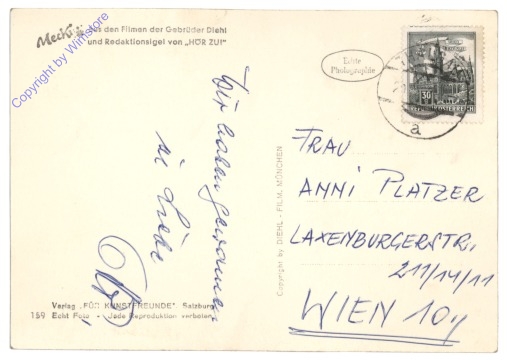 Mecki aus den Filmen der Gebrüder Diehl
und Redaktionsigel von „HÖR ZU!"
Copyright by Winstore
Echte
Photographie
30
REPUBLIK ÖSTERREICH
a
Wir haben gewonnen
in Liebe
Copyright by DIEHL - FILM, MÜNCHEN
FRAU
ANNI PLATZER
LAXENBURGERSTR.,
211/14/11
WIEN 10,
Verlag „FÜR KUNSTFREUNDE", Salzburg
159 Echt Foto - Jede Reproduktion verboten